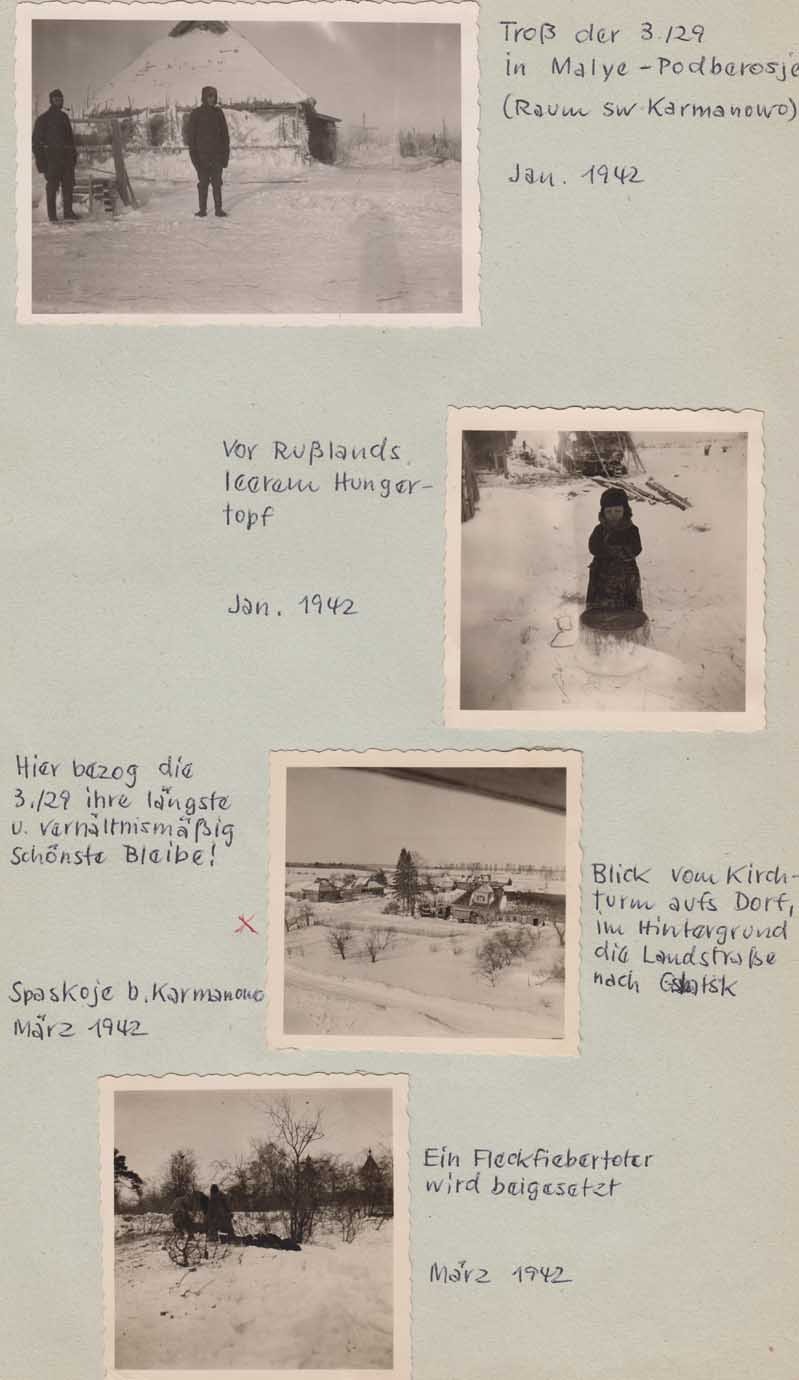 Troß der 3./29
in Malye-Podberosje
(Raum sw Karmanowo)
Jan. 1942
Vor Rußlands
leerem Hunger-
topf
Jan. 1942
Hier bezog die
3./29 ihre längste
u. verhältnismäßig
schönste Bleibe!
x
Spaskoje b. Karmanowo
März 1942
Blick vom Kirch-
turm aufs Dorf,
im Hintergrund
die Landstraße
nach
Ein Fleckfiebertoter
wird beigesetzt
März 1942